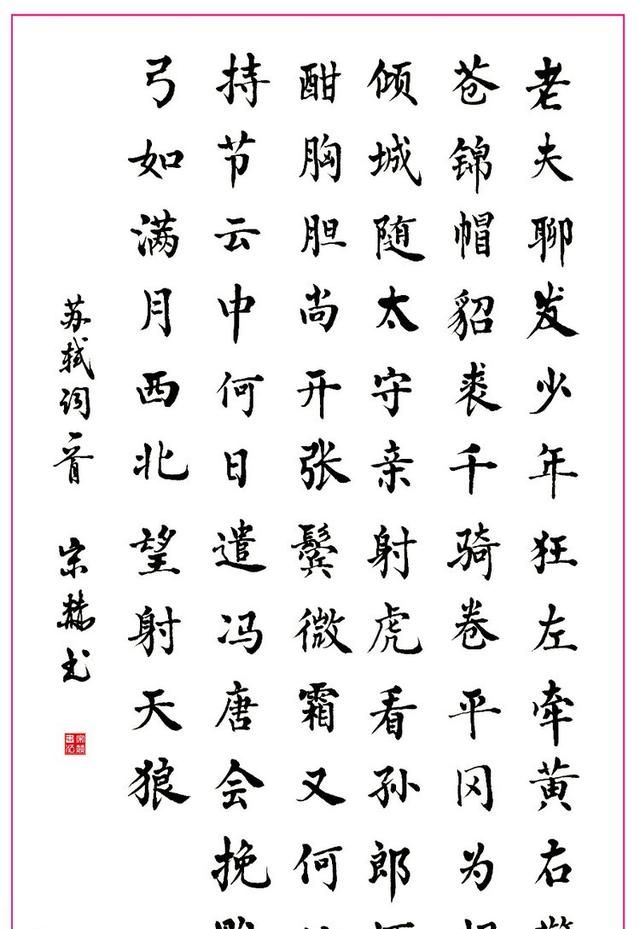 老夫聊发少年狂左牵黄右
苍锦帽貂裘千骑卷平冈为
倾城随太守亲射虎看孙郎
酣胸胆尚开张鬓微霜又何
持节云中何日遣冯唐会挽
弓如满月西北望射天狼
苏轼词一首